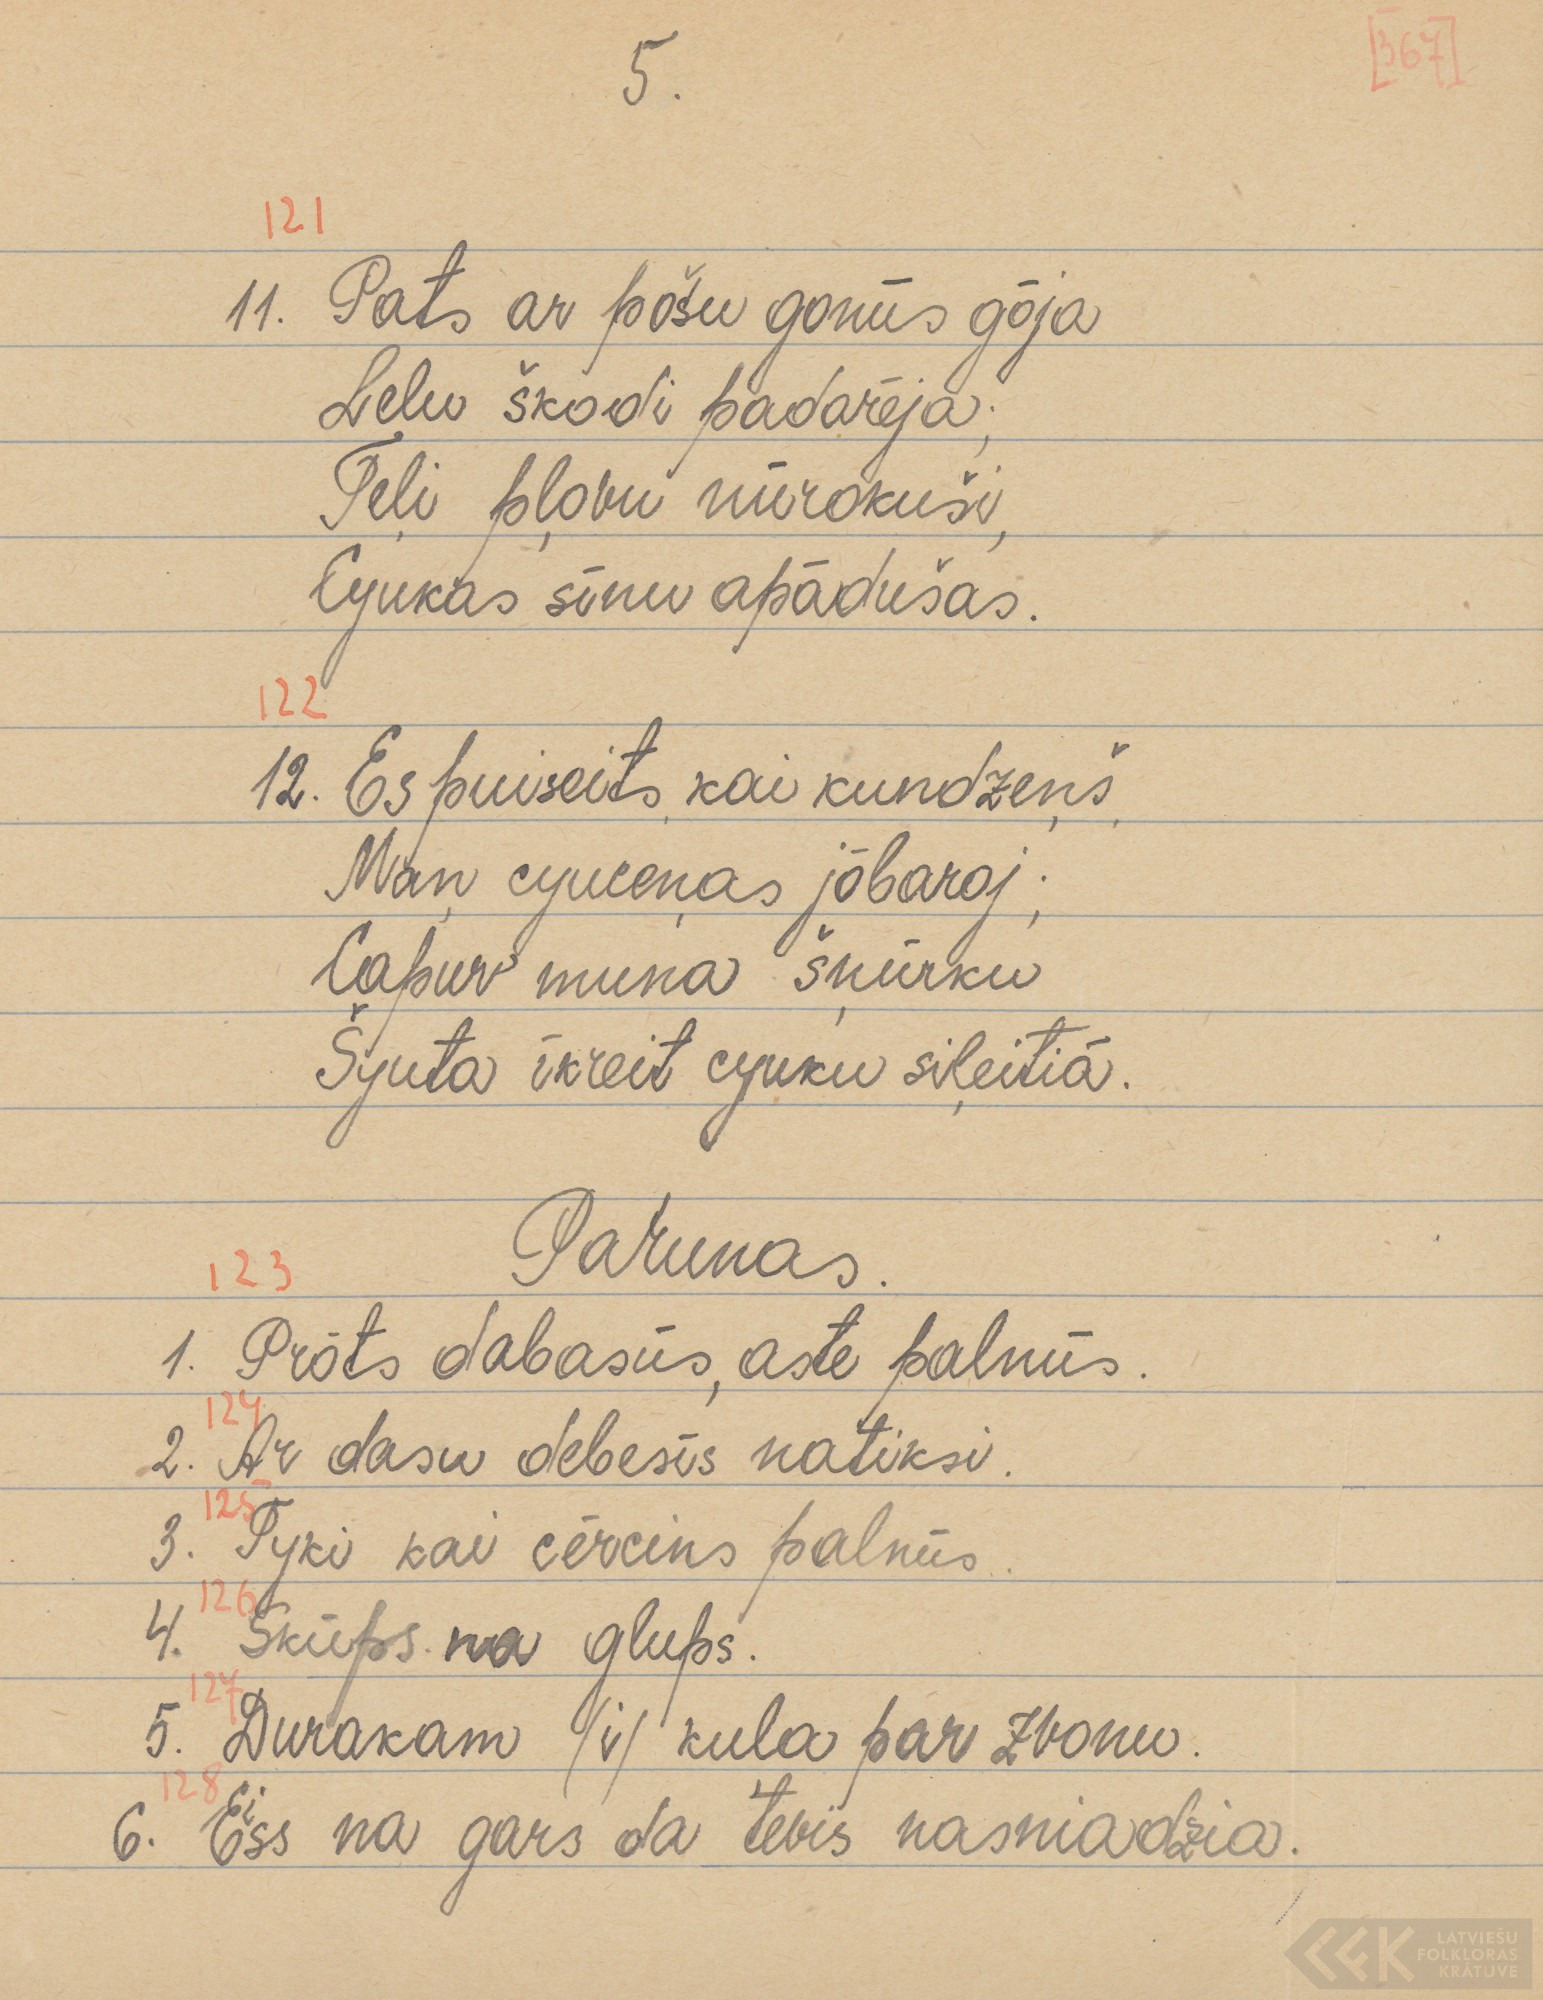 5.
[367]
121
11. Pats ar pōšu gonūs gōja
Lelu škodi padarēja;
Teļi pļovu nūrokuši,
Cyukas sīnu apādušas.
122
12. Es puiseits, kai kundzeņš,
Maņ cyuceņas jōbaroj;
Capur muna šņūrku
Šyuta īkreit cyuku siļeitiā.
Parunas.
123
1. Prōts dabasūs, aste palnūs.
124
2. Ar dasu debesīs natiksi.
125
3. Tyki kai cērcins palnūs.
126
4. Skūps na glups.
127
5. Durakam /i/ kula par zvonu.
128
6. Eiss na gars da tevis nasniadžia.
LATVIEŠU
FOLKLORAS
KRĀTUVE